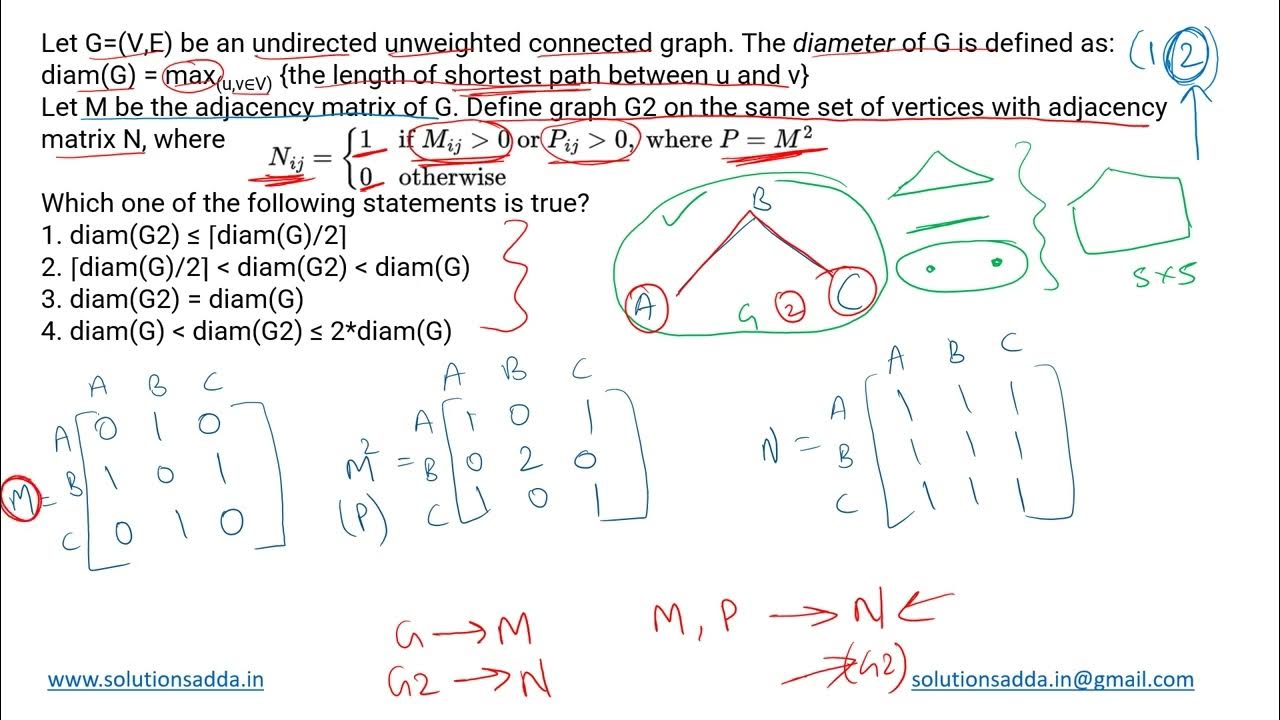 Let G=(V,E) be an undirected unweighted connected graph. The diameter of G is defined as:
diam(G) = max(u,v∈V) {the length of shortest path between u and v}
Let M be the adjacency matrix of G. Define graph G2 on the same set of vertices with adjacency
matrix N, where
N_ij = { 1 if M_ij > 0 or P_ij > 0, where P = M²
0 otherwise
Which one of the following statements is true?
1. diam(G2) ≤ ⌈diam(G)/2⌉
2. ⌈diam(G)/2⌉ < diam(G2) < diam(G)
3. diam(G2) = diam(G)
4. diam(G) < diam(G2) ≤ 2*diam(G)
(1 2)
B
A C
G 2
5x5
A B C
A 0 1 0
M = B 1 0 1
C 0 1 0
A B C
A 1 0 1
M² = B 0 2 0
(P) C 1 0 1
A B C
A 1 1 1
N = B 1 1 1
C 1 1 1
G → M
G2 → N
M, P → N ←
→ (G2)
www.solutionsadda.in
solutionsadda.in@gmail.com